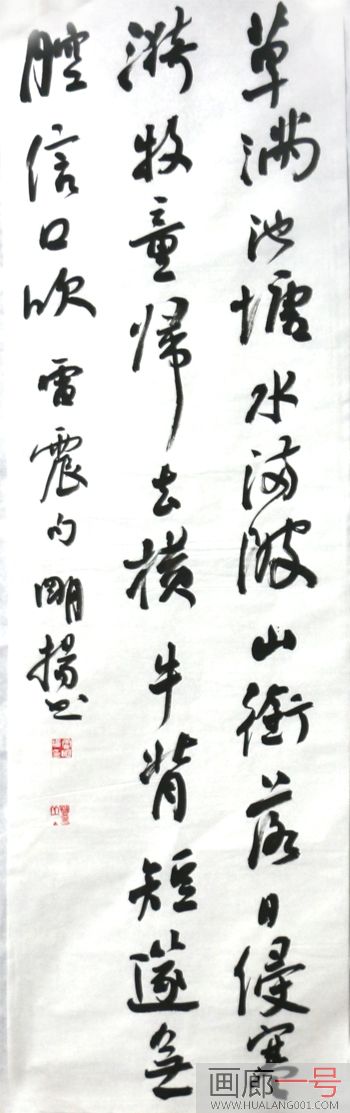 草滿池塘水滿陂山銜落日侵寒
漪牧童歸去横牛背短篴無
腔信口吹 雷震句 明揚书
画廊一号
WWW.HUALANG001.COM